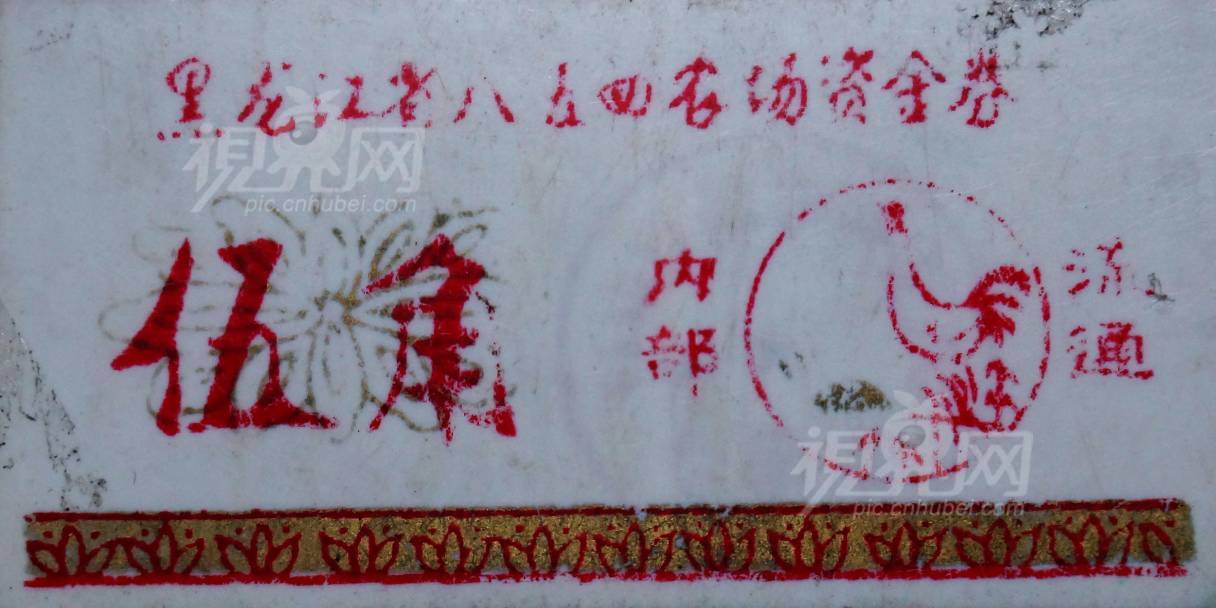 黑龙江省八五四农场资金券
視界网
pic.cnhubei.com
伍角
内部
流通
視界网
pic.cnhubei.com